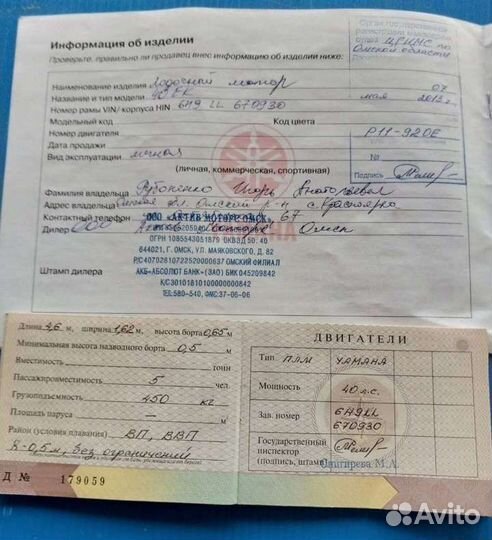 Информация об изделии
Проверьте, правильно ли продавец внес информацию об изделии ниже:
Наименование изделия Лодочный мотор
Название и тип модели
Номер рамы VIN/ корпуса HIN 6H9 LL 670930
Модельный код
Код цвета
Номер двигателя
Дата продажи
Вид эксплуатации личная
(личная, коммерческая, спортивная)
Фамилия владельца Игорь
Адрес владельца
Контактный телефон 67
Дилер ООО Омск
ООО «АКТИВ МОТОРС ОМСК»
ОГРН 1085543051879 ОКВЭД 50.40
644021, Г. ОМСК, УЛ. МАЯКОВСКОГО, Д. 82
Р/С40702810722520000637 ОМСКИЙ ФИЛИАЛ
АКБ«АБСОЛЮТ БАНК»(ЗАО) БИК 045209842
К/С30101810100000000842
ТЕЛ:580-540, ФМС:37-06-06
Штамп дилера
Орган государственной
регистрации
Омской области
07
мая 2013 г.
Р11-92ОЕ
№
Подпись
Длина 4,6 м, ширина 1,62 м, высота борта 0,65 м
Минимальная высота надводного борта 0,5 м
Вместимость тонн
Пассажировместимость 5 чел.
Грузоподъемность 450 кг
Площадь паруса — м
Район (условия плавания) ВП, ВВП
h-0,5м, без ограничений
Д № 179059
ДВИГАТЕЛИ
Тип ПЛМ YAMAHA
Мощность 40 л.с.
Зав. номер 6H9LL
670930
Государственный
инспектор
(подпись, штамп)
Онгирева М.А.
Avito